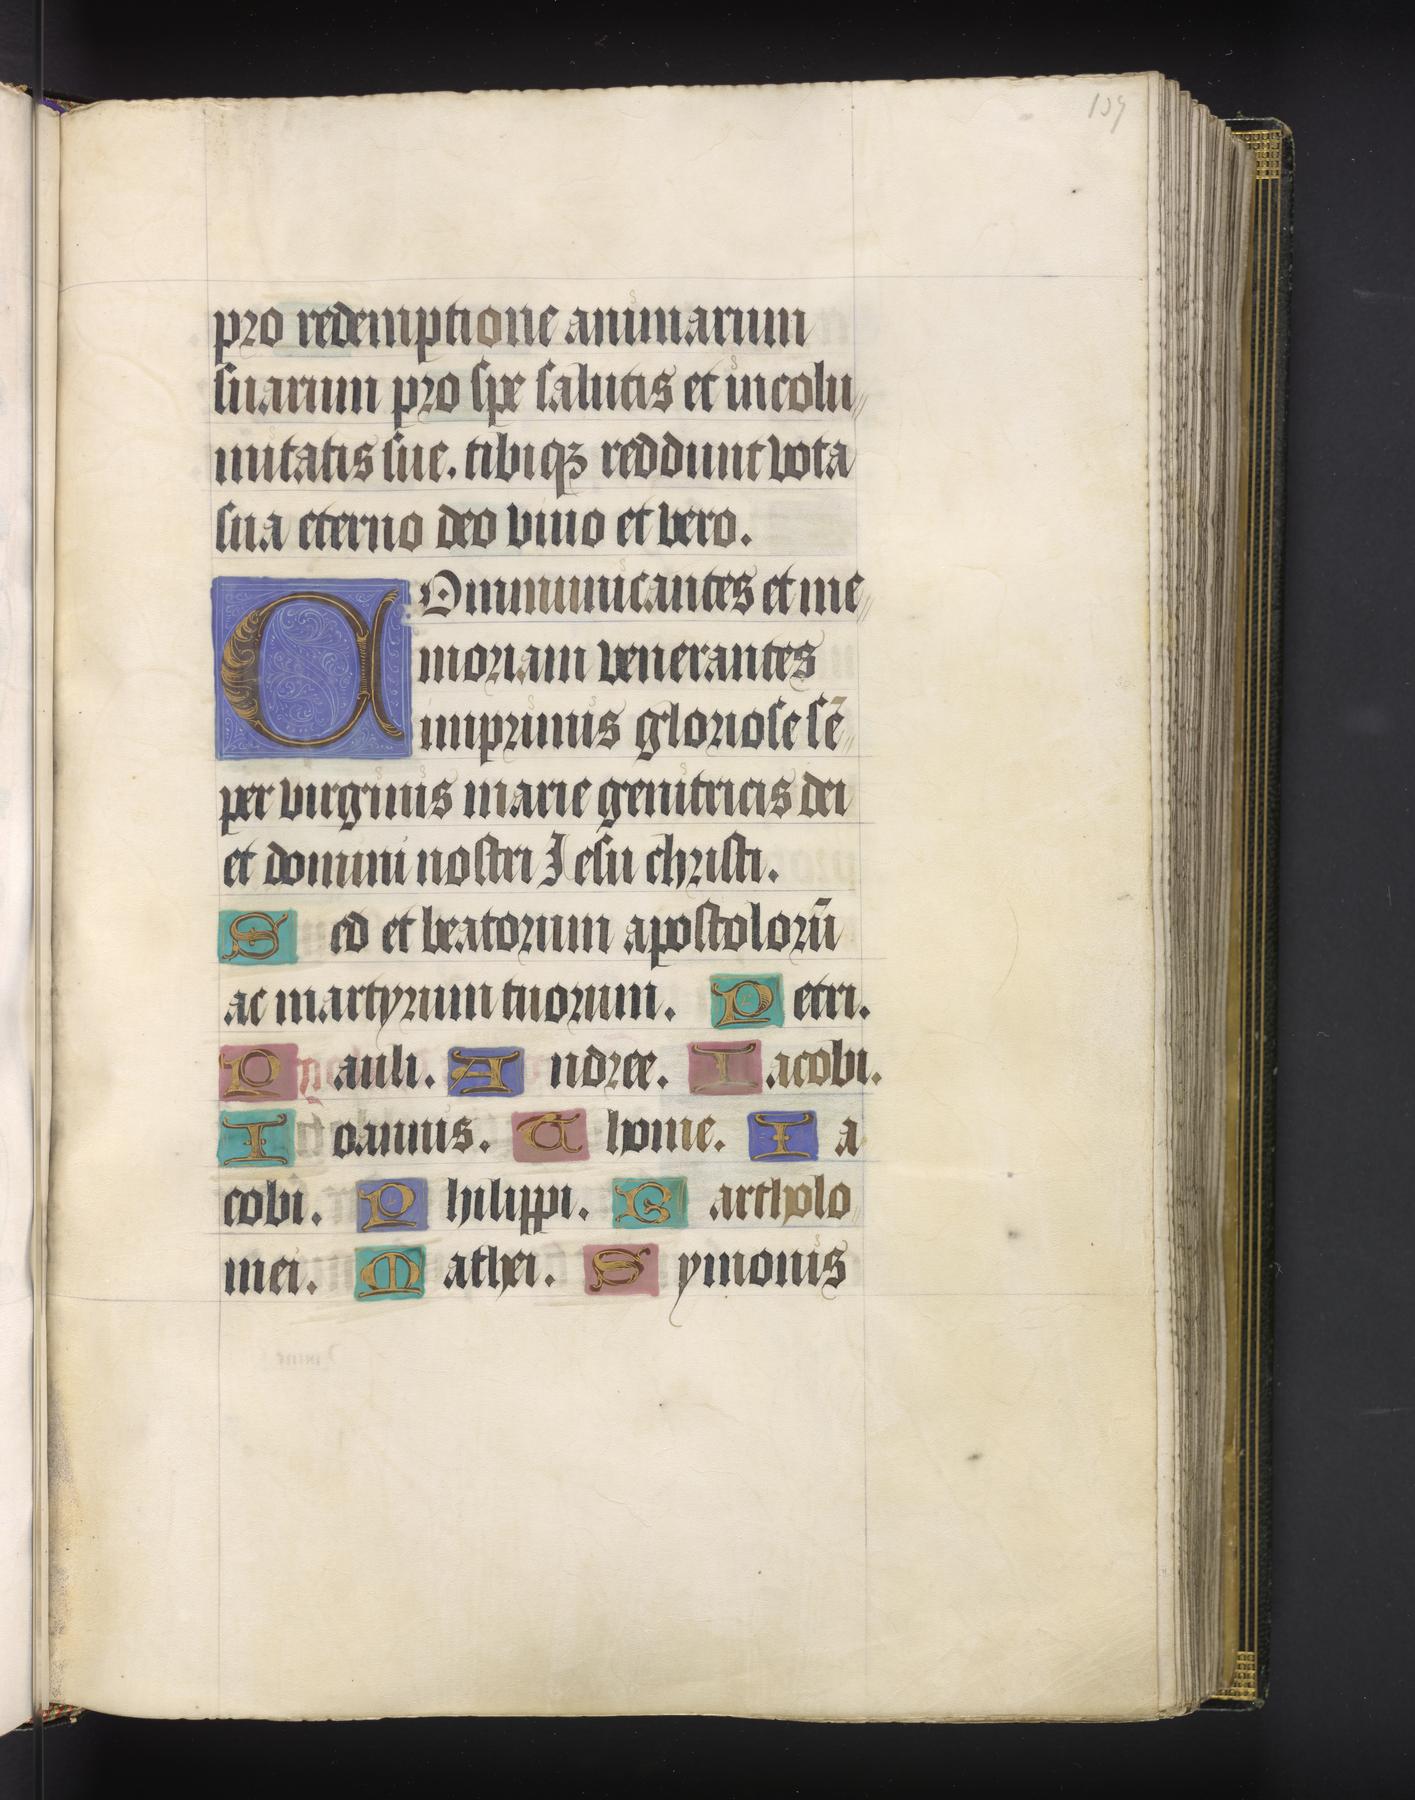 139
pro redemptione animarum
suarum pro spe salutis et incolu
mitatis sue. tibiqꝫ reddunt vota
sua eterno deo viuo et vero.
COmmunicantes et me
moriam venerantes
imprimis gloriose sē
per virginis marie genitricis dei
et domini nostri Jesu christi.
Sed et beatorum apostolorū
ac martyrum tuorum. Petri.
Pauli. Andree. Iacobi.
Ioannis. Thome. Ia
cobi. Philippi. Bartholo
mei. Mathei. Symonis